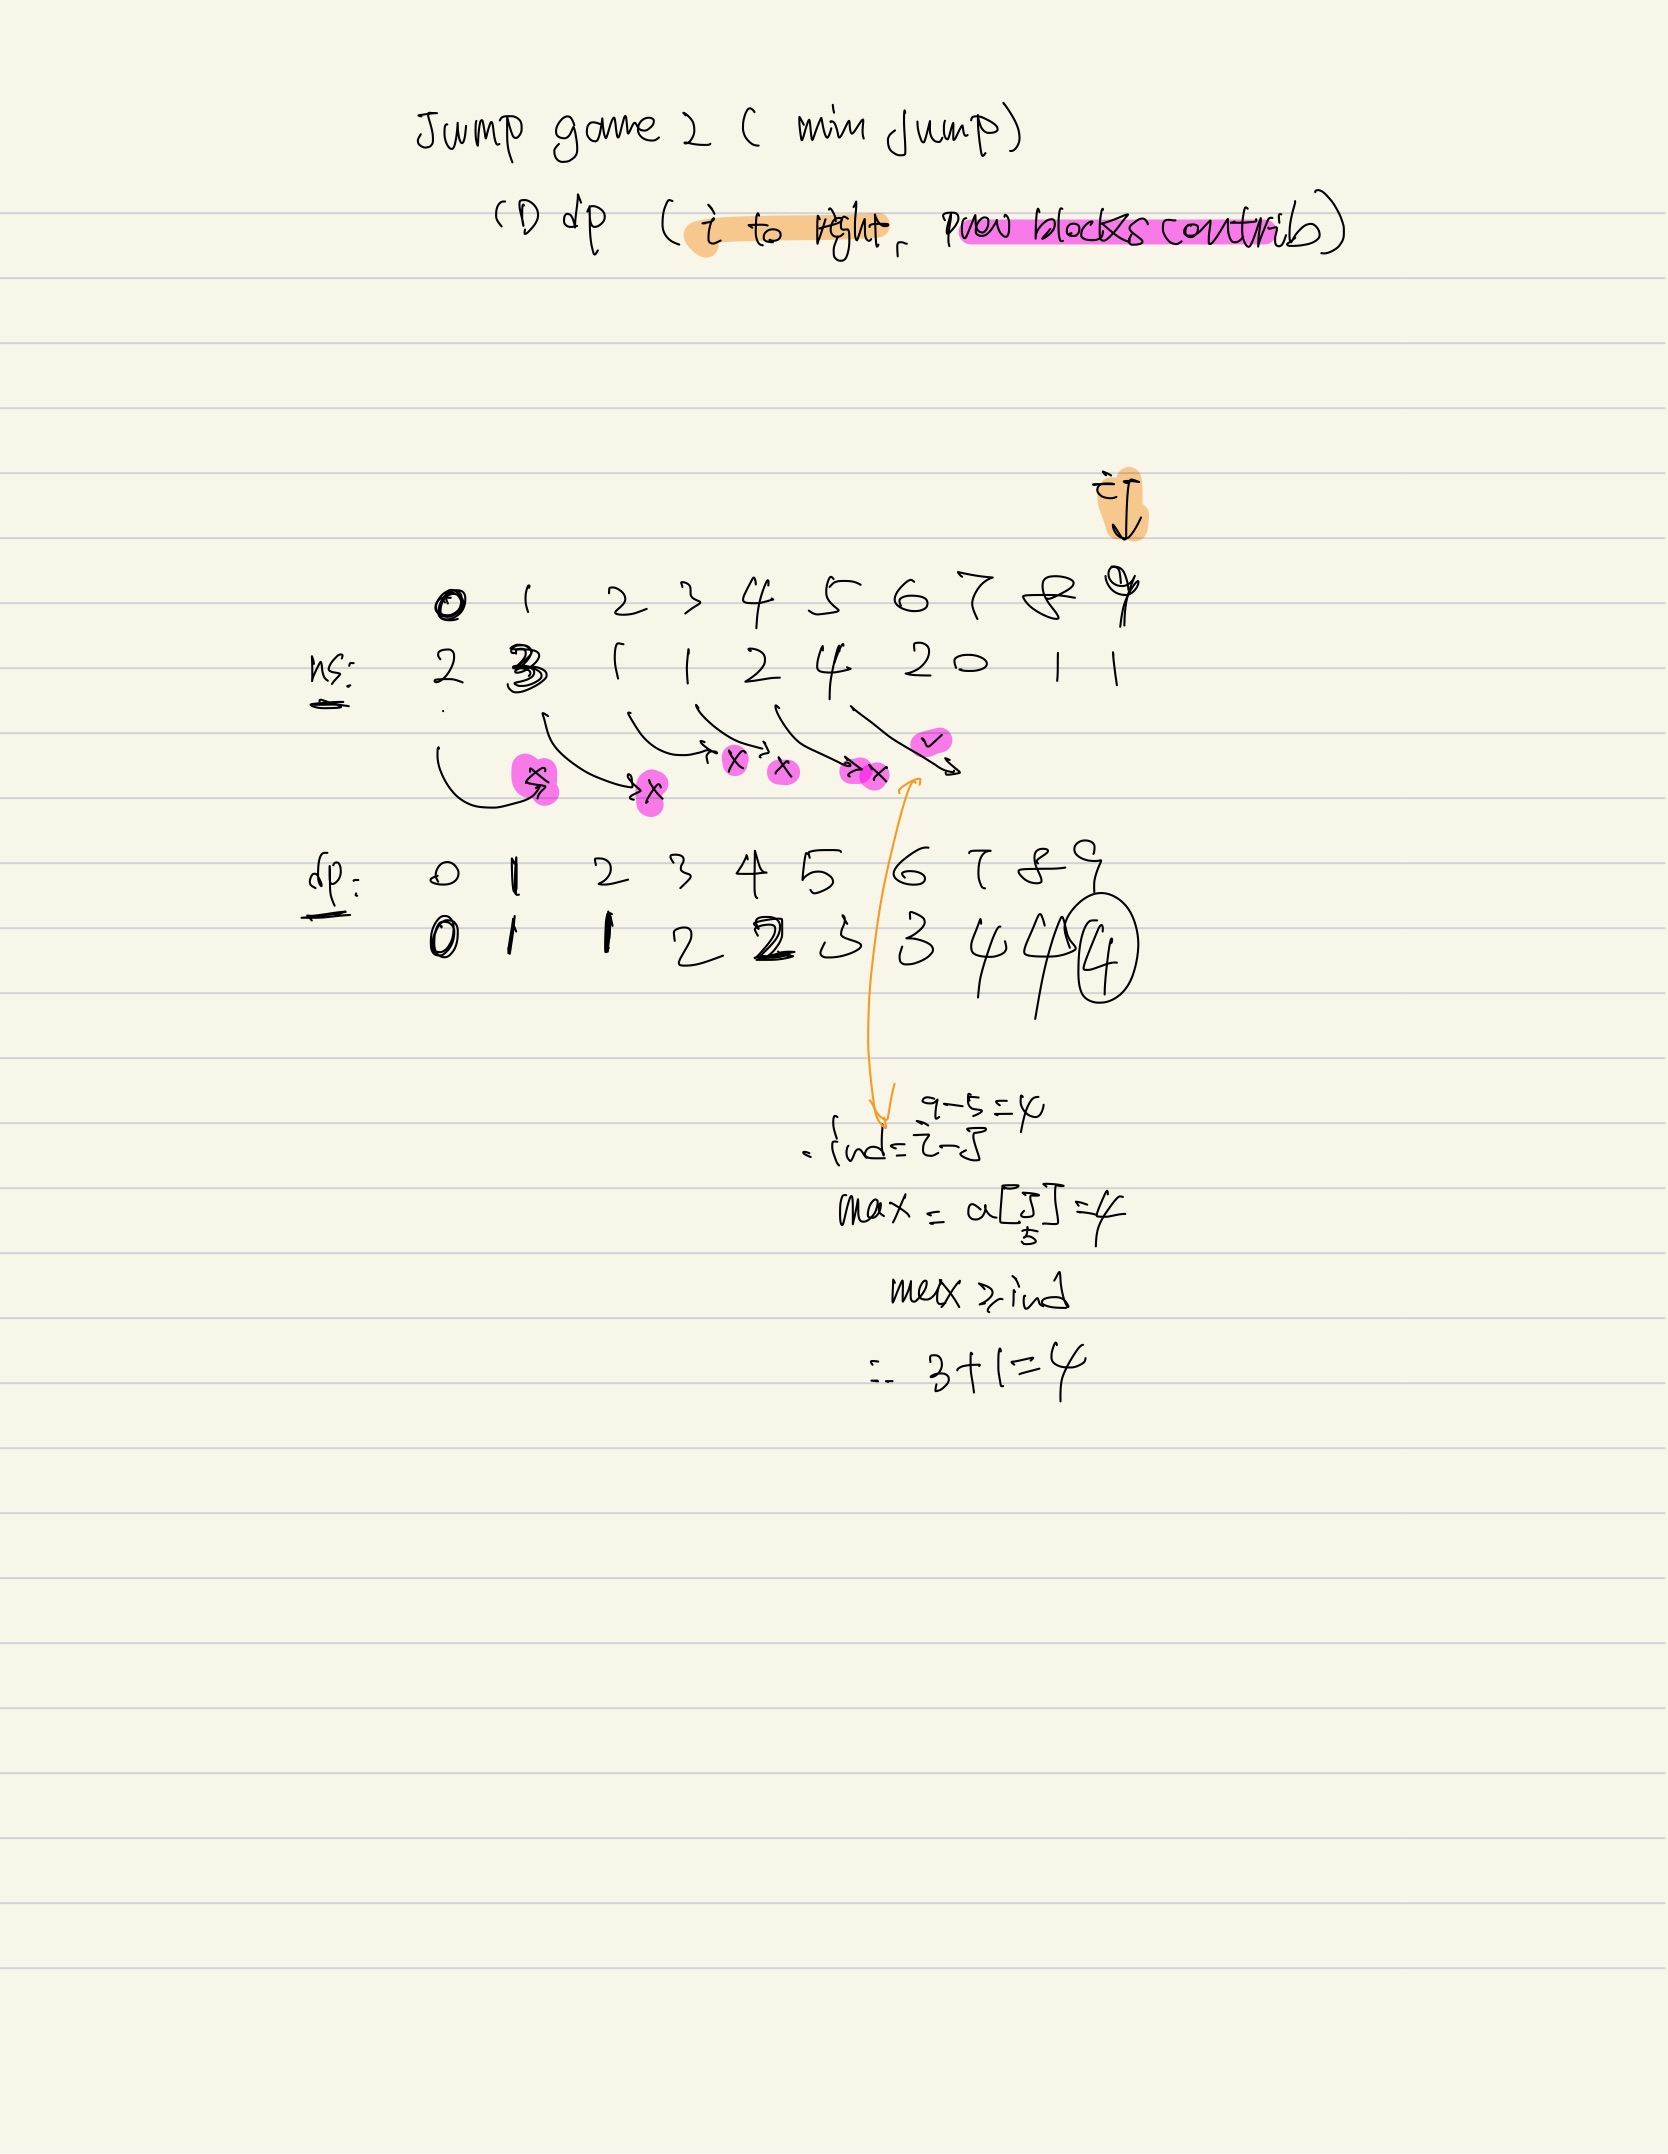 Jump game 2 ( min Jump)
(1) dp (i to right, prev blocks contrib)
i
0 1 2 3 4 5 6 7 8 9
ns: 2 3 1 1 2 4 2 0 1 1
x x x x x ✓
dp: 0 1 2 3 4 5 6 7 8 9
0 1 1 2 2 3 3 4 4 4
9-5=4
ind= i-J
max = a[J]=4
5
max ≥ ind
∴ 3+1=4